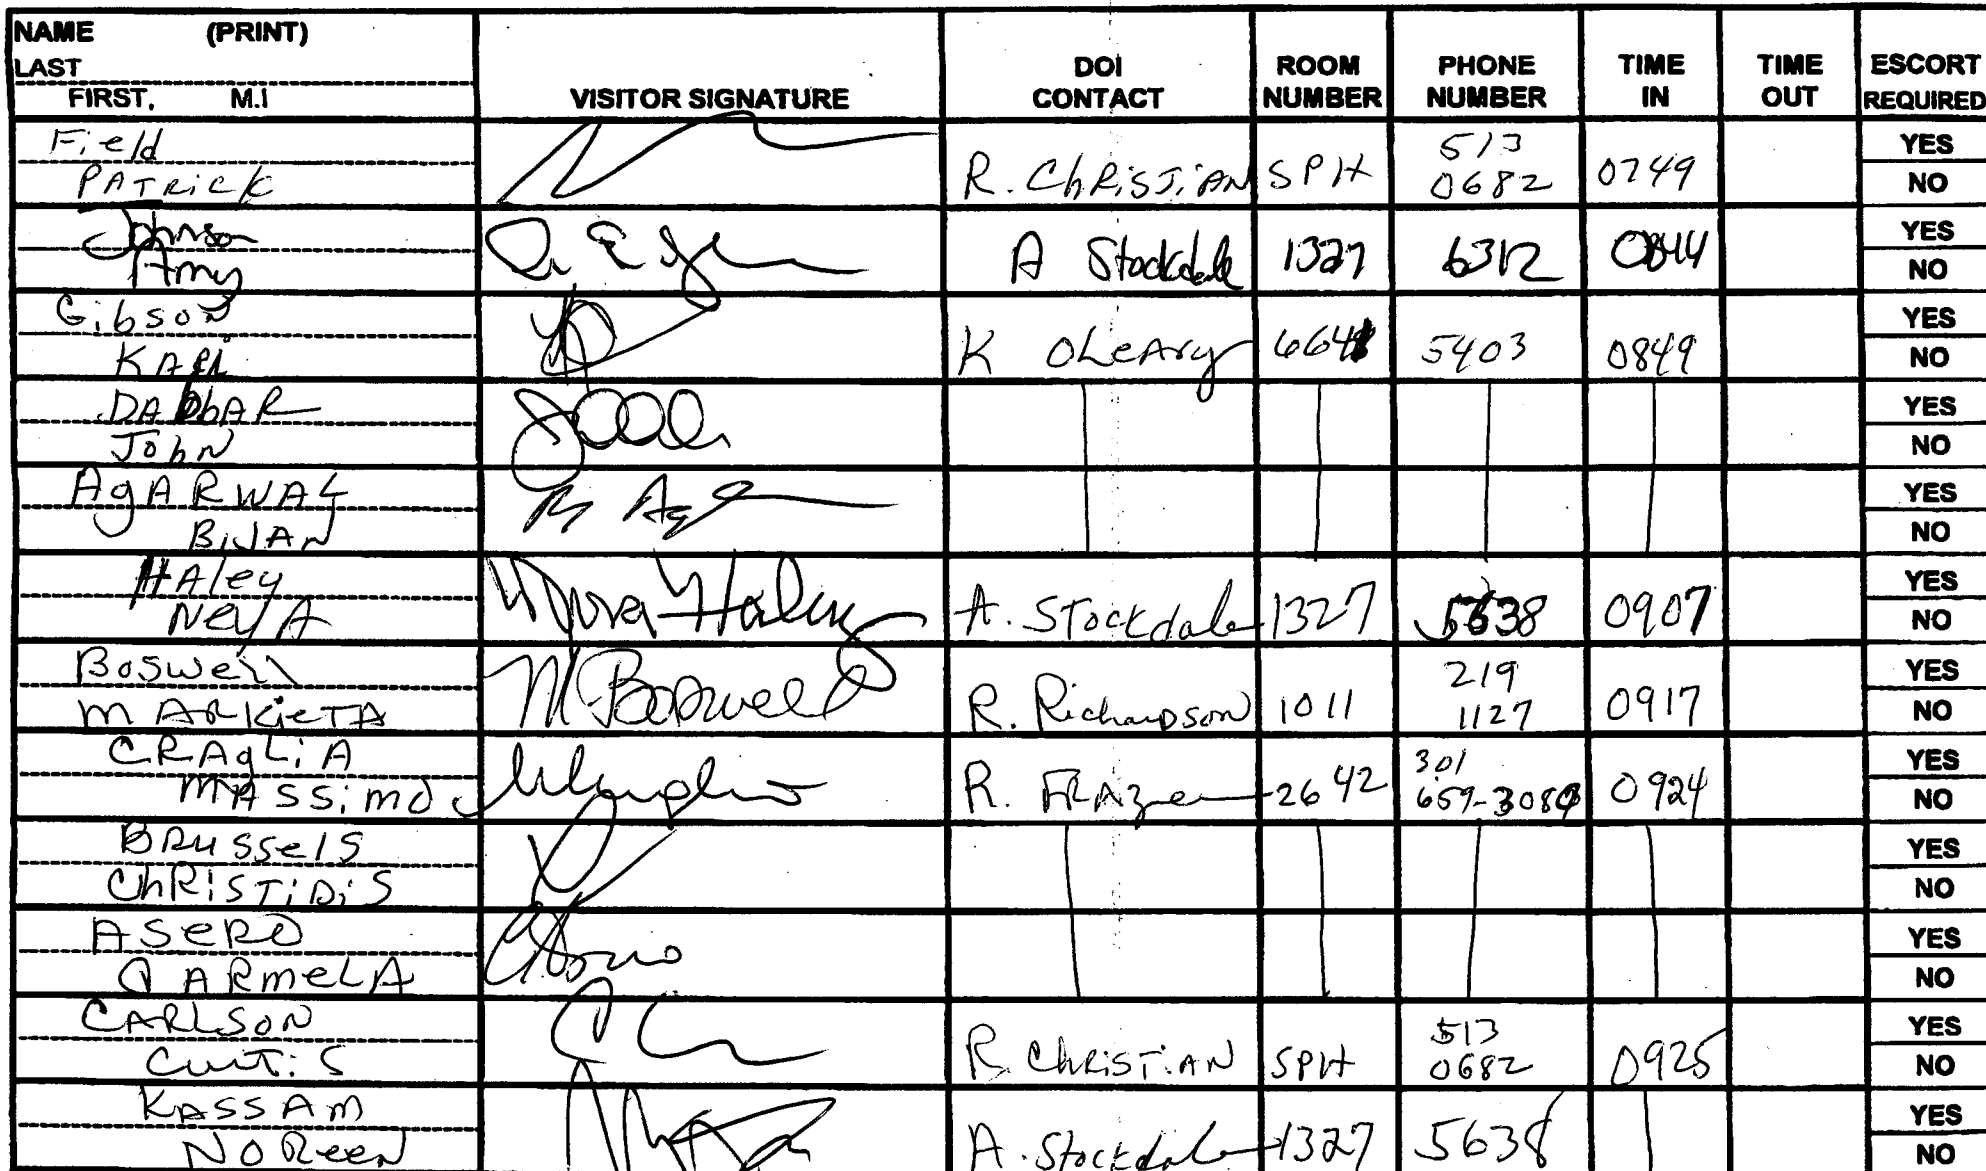 NAME (PRINT)
LAST
FIRST, M.I
VISITOR SIGNATURE
DOI CONTACT
ROOM NUMBER
PHONE NUMBER
TIME IN
TIME OUT
ESCORT REQUIRED
Field
PATRicK
R. ChRiSTiAN SPH 513 0682 0749
YES
NO
Johnson
Amy
A Stockdale 1327 6312 0844
YES
NO
Gibson
KARi
K OLeAry 5403 0849
YES
NO
DAbbAR
JohN
YES
NO
AgARWAL
BiJAN
YES
NO
HAley
NeyA
A. STockdale 1327 5638 0907
YES
NO
Boswell
mARKieTA
M Boswell
R. Richardson 1011 219 1127 0917
YES
NO
CRAgLiA
mASSimo
R. FRAzer 2642 301 0924
YES
NO
BRusselS
ChRiSTiDiS
YES
NO
ASeRO
CARmeLA
YES
NO
CARLSON
CurTiS
R. ChRiSTiAN SPH 513 0682 0925
YES
NO
KASSAm
NOReeN
A. Stockdale 1327 5638
YES
NO